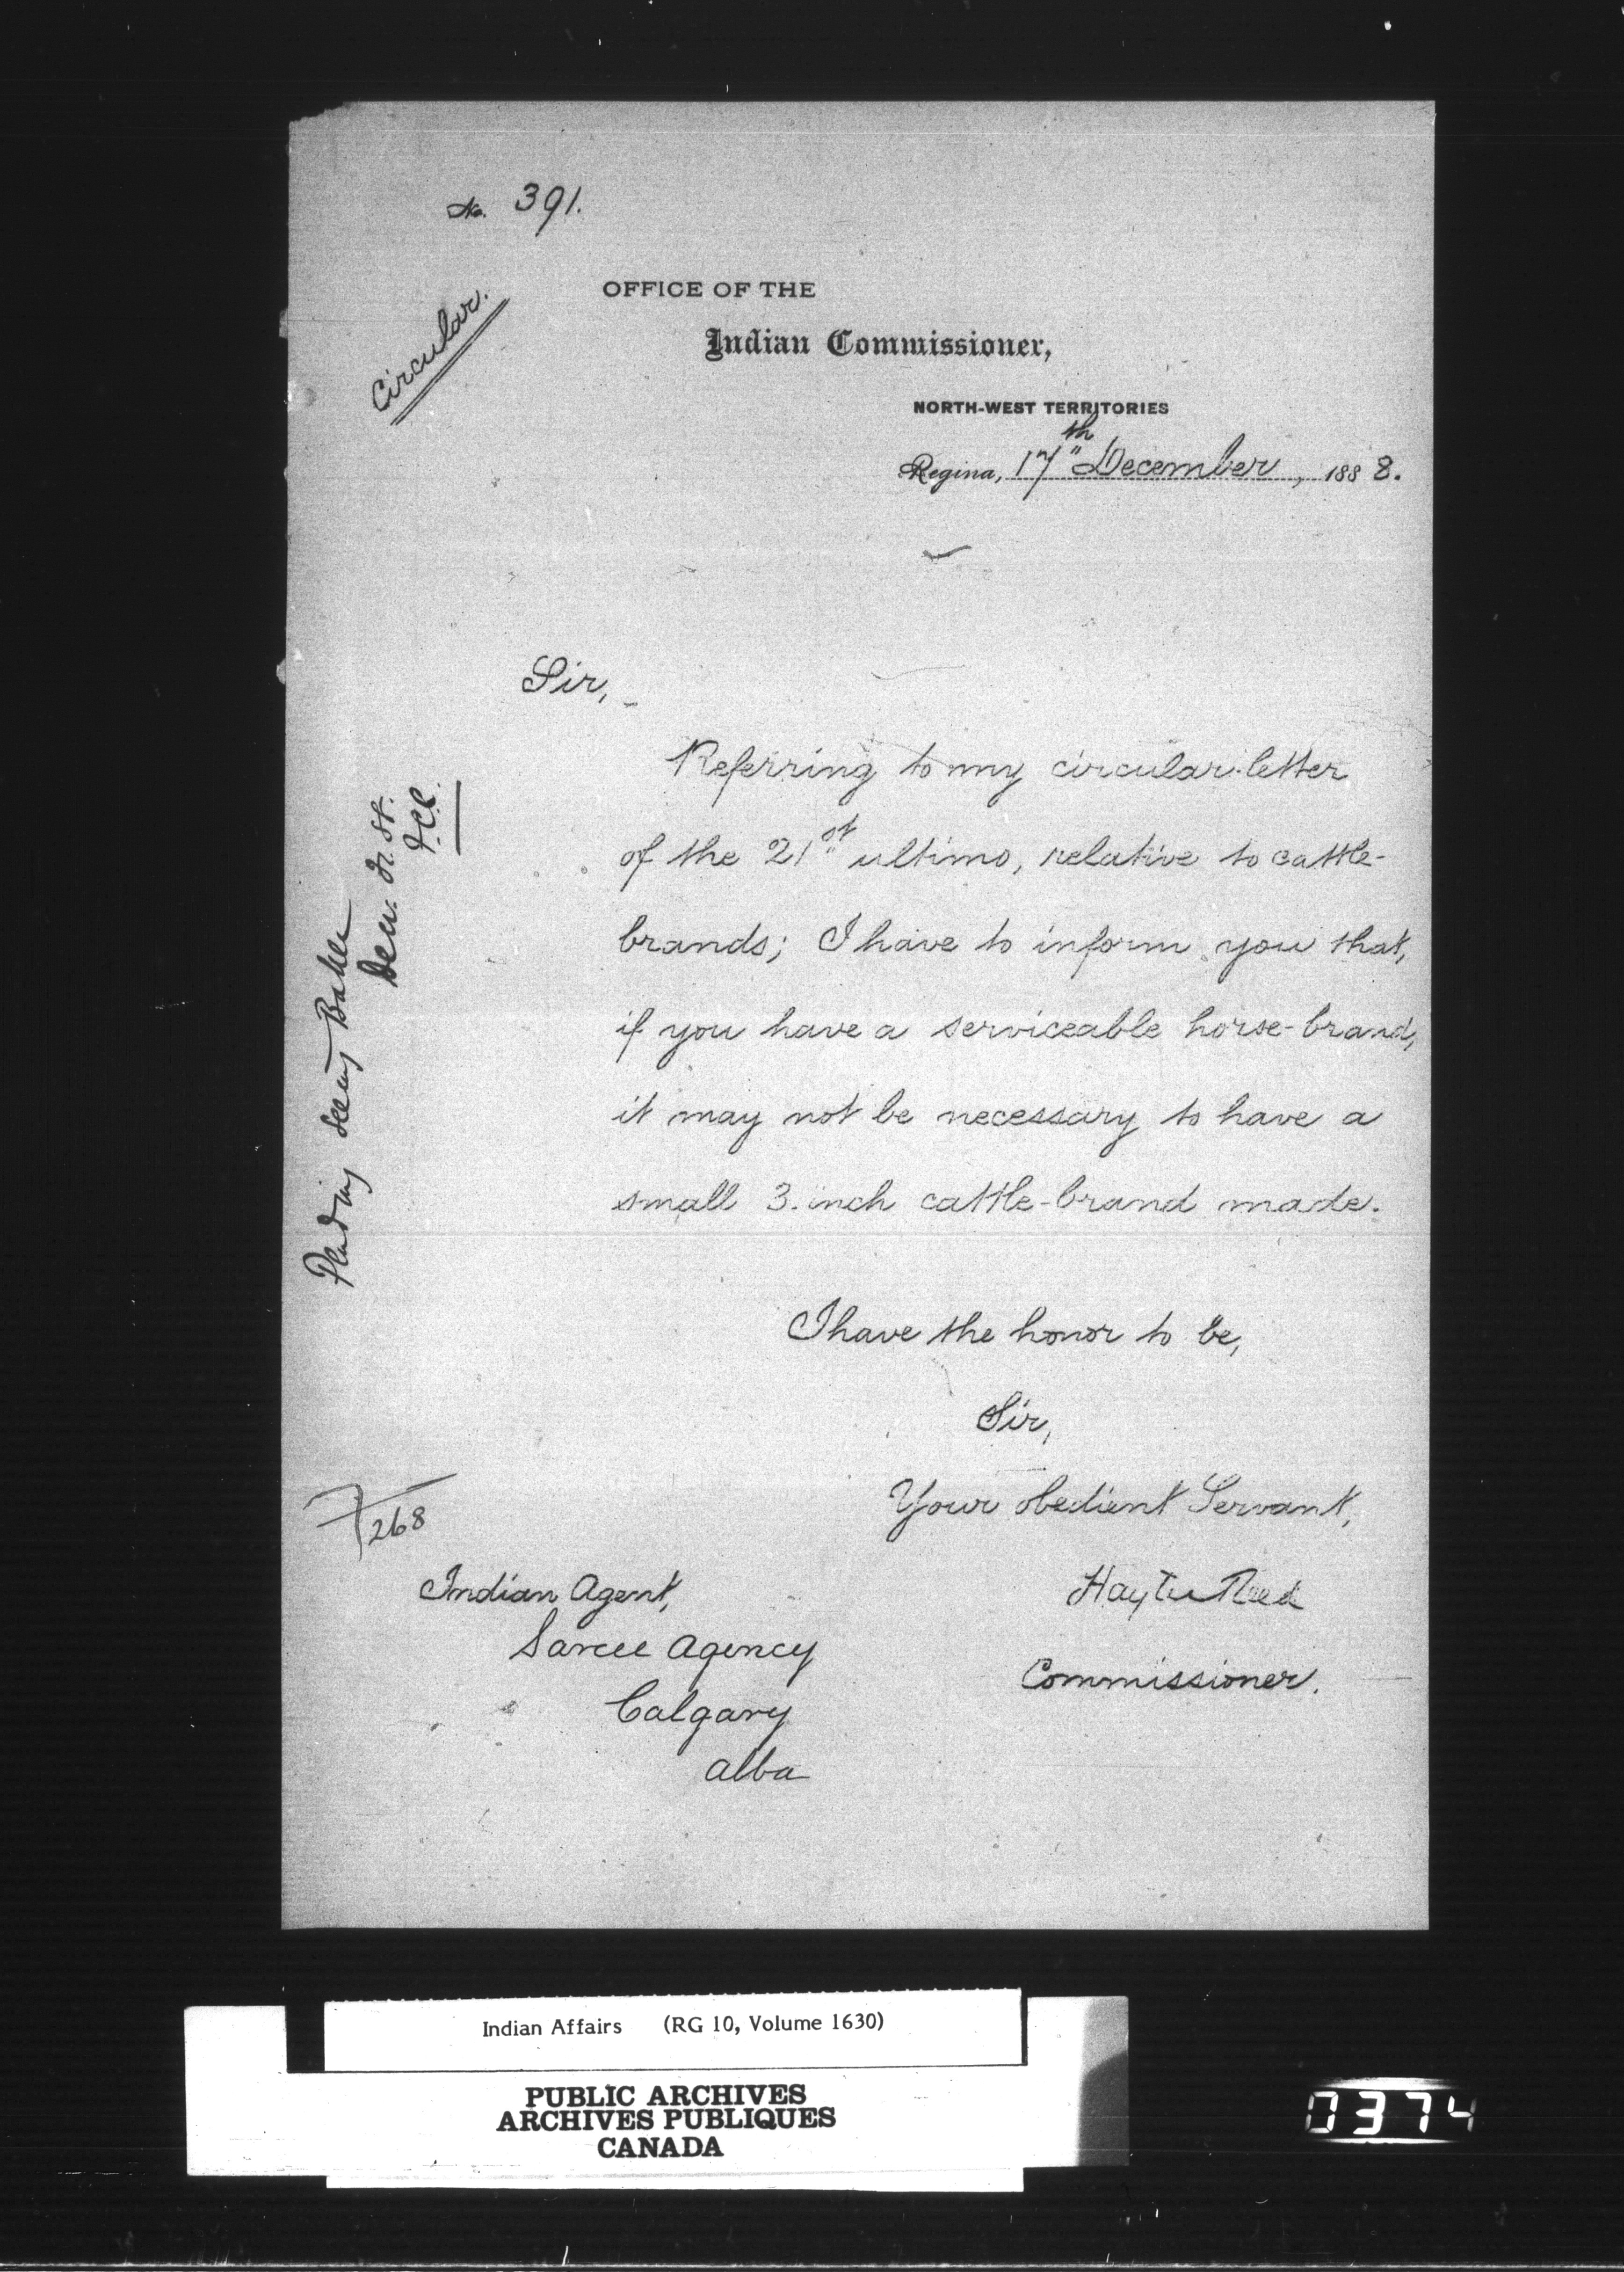 No. 391.
Circular.
OFFICE OF THE
Indian Commissioner,
NORTH-WEST TERRITORIES
Regina, 17th December, 1888.
Sir,
Referring to my circular-letter
of the 21st ultimo, relative to cattle-
brands; I have to inform you that,
if you have a serviceable horse-brand,
it may not be necessary to have a
small 3.inch cattle-brand made.
I have the honor to be,
Sir,
Your obedient Servant,
Hayter Reed
Commissioner.
268
Indian Agent,
Sarcee Agency
Calgary
Alba
Indian Affairs (RG 10, Volume 1630)
PUBLIC ARCHIVES
ARCHIVES PUBLIQUES
CANADA
0374